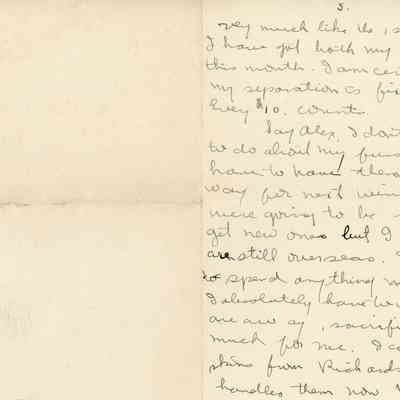 5.
very much like the, s
I have got both my
this month. I am cer
my separation is fi
Every $10. counts.
Say Alex, I don't
to do about my furs
have to have them
way for next win
were going to be
get new ones but I
are still overseas.
to spend anything
I absolutely have
are away, sacrifi
much for me. I co
skins from Richards
handles them now